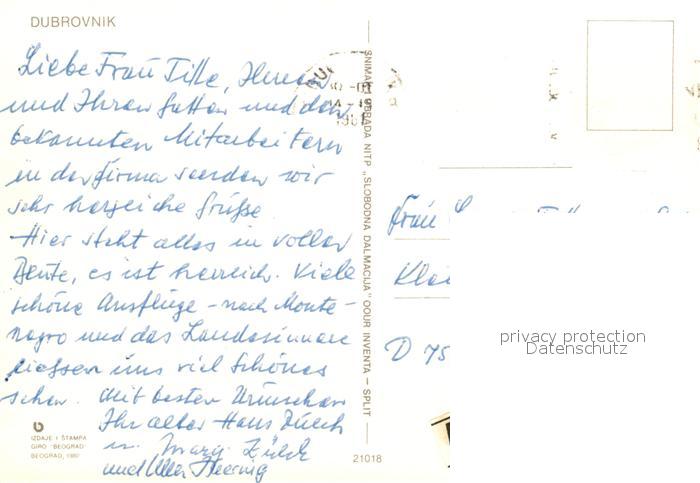 DUBROVNIK
Liebe Frau Tille, Ihnen
und Ihrem Gatten und den
bekannten Mitarbeitern
in der Firma senden wir
sehr herzliche Grüße.
Hier steht alles in voller
Blüte, es ist herrlich. Viele
schöne Ausflüge - nach Monte-
negro und das Landesinnere
liessen uns viel Schönes
sehen. Mit besten Wünschen
Ihr alter Hans
u.
und
IZDAJE I ŠTAMPA
GIRO "BEOGRAD"
BEOGRAD, 1980
SNIMAK I OBRADA NITP „SLOBODNA DALMACIJA" OOUR INVENTA — SPLIT
21018
Frau
D 75
privacy protection
Datenschutz